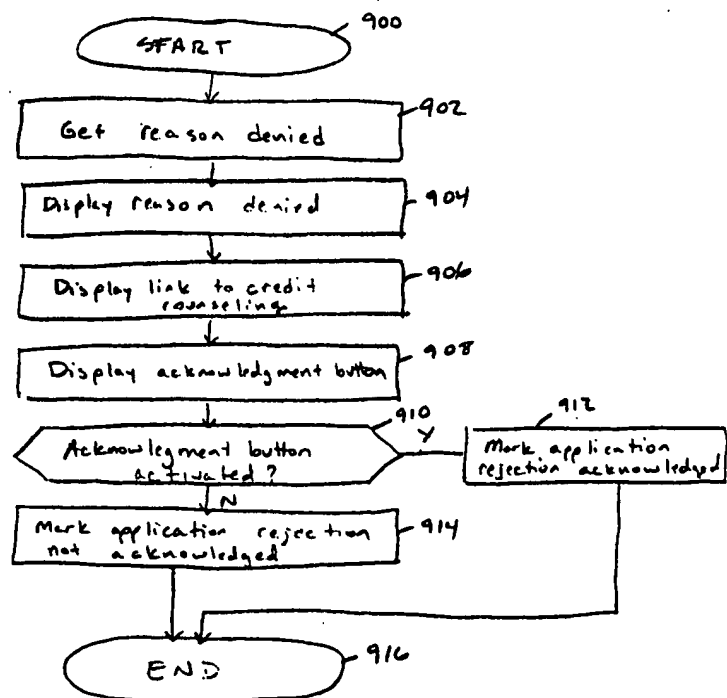 START
900
Get reason denied
902
Display reason denied
904
Display link to credit
counseling
906
Display acknowledgment button
908
910
Acknowlegment button
activated?
Y
N
912
Mark application
rejection acknowledged
Mark application rejection
not acknowledged
914
END
916